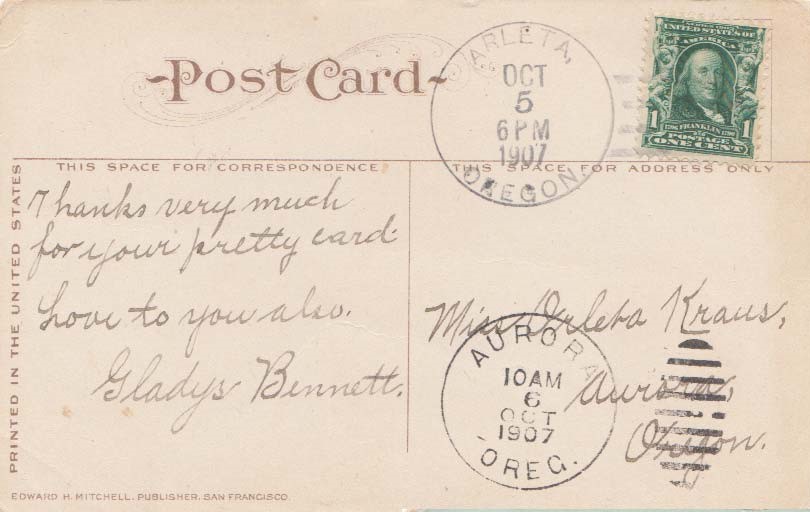 Post Card
ARLETA,
OCT
5
6 PM
1907
OREGON.
UNITED STATES OF
AMERICA
1 1
FRANKLIN
POSTAGE
ONE CENT
THIS SPACE FOR CORRESPONDENCE
THIS SPACE FOR ADDRESS ONLY
PRINTED IN THE UNITED STATES
Thanks very much
for your pretty card.
Love to you also.
Gladys Bennett.
Miss Orleta Kraus,
Aurora,
Oregon.
AURORA
10 AM
6
OCT
1907
OREG.
EDWARD H. MITCHELL, PUBLISHER, SAN FRANCISCO.